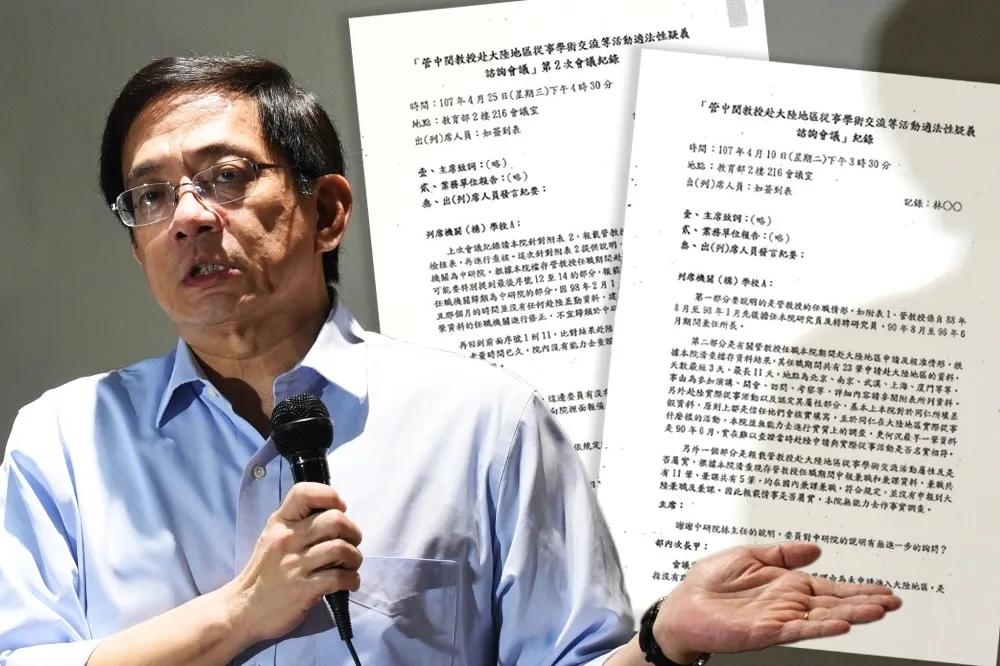 「管中閔教授赴大陸地區從事學術交流等活動適法性疑義
諮詢會議」第2次會議紀錄
時間：107年4月25日(星期三)下午4時30分
地點：教育部2樓216會議室
出(列)席人員：如簽到表
壹、主席致詞：(略)
貳、業務單位報告：(略)
參、出(列)席人員發言紀要：
列席機關（構）學校A：
上次會議紀錄請本院針對附表2，報載管教授
檢核表，再進行查核。這次針對附表2提供說明，
機關為中研院。根據本院檔存管教授任職期間赴
可能要特別提到最後序號12至14的部分，報載
任職機關歸類為中研院的部分，因98年2月1
且那個月的時間並沒有任何赴陸差勤資料，建
筆資料的任職機關進行修正，不宜歸類於中研
再回到前面序號1到11，比對結果赴陸
考量時間已久，院內沒有能力去查證
這邊委員有沒有
向院裡面報備
依規定
「管中閔教授赴大陸地區從事學術交流等活動適法性疑義
諮詢會議」紀錄
時間：107年4月10日(星期二)下午3時30分
地點：教育部2樓216會議室
出(列)席人員：如簽到表
記錄：林○○
壹、主席致詞：(略)
貳、業務單位報告：(略)
參、出(列)席人員發言紀要：
列席機關（構）學校A：
第一部分要說明的是管教授的任職情形，如附表1，管教授係自88年
8月至98年1月先後擔任本院研究員及特聘研究員，90年8月至96年6
月期間兼任所長。
第二部分是有關管教授任職本院期間赴大陸地區申請及核准情形，根
據本院清查檔存資料結果，其任職期間共有23筆申請赴大陸地區的資料，
天數最短3天，最長11天，地點為北京、南京、武漢、上海、廈門等等，
事由為參加演講、開會、訪問、考察等，詳細內容請參閱附表所列資料。
另外赴陸實際從事活動以及認定其屬性部分，基本上本院對於同仁所填差
假資料，原則上都是信任他們會核實填寫，至於同仁在大陸地區實際從事
什麼樣的活動，本院並無能力去進行實質上的調查，更何況最早一筆資料
是90年6月，實在難以查證當時赴陸申請與實際從事活動是否名實相符。
另外一個部分是報載管教授赴大陸地區從事學術交流活動屬性及是
否屬實，根據本院清查現存管教授任職期間申報兼職和兼課資料，兼職共
有11筆、兼課共有5筆，均在國內兼課兼職，符合規定，並沒有申報到大
陸兼職及兼課。因此報載情事是否屬實，本院無能力去作事實調查。
主席：
謝謝中研院林主任的說明，委員對中研院的說明有無進一步的詢問？
部內次長甲：
會議
理由為未申請進入大陸地區，是
指沒有